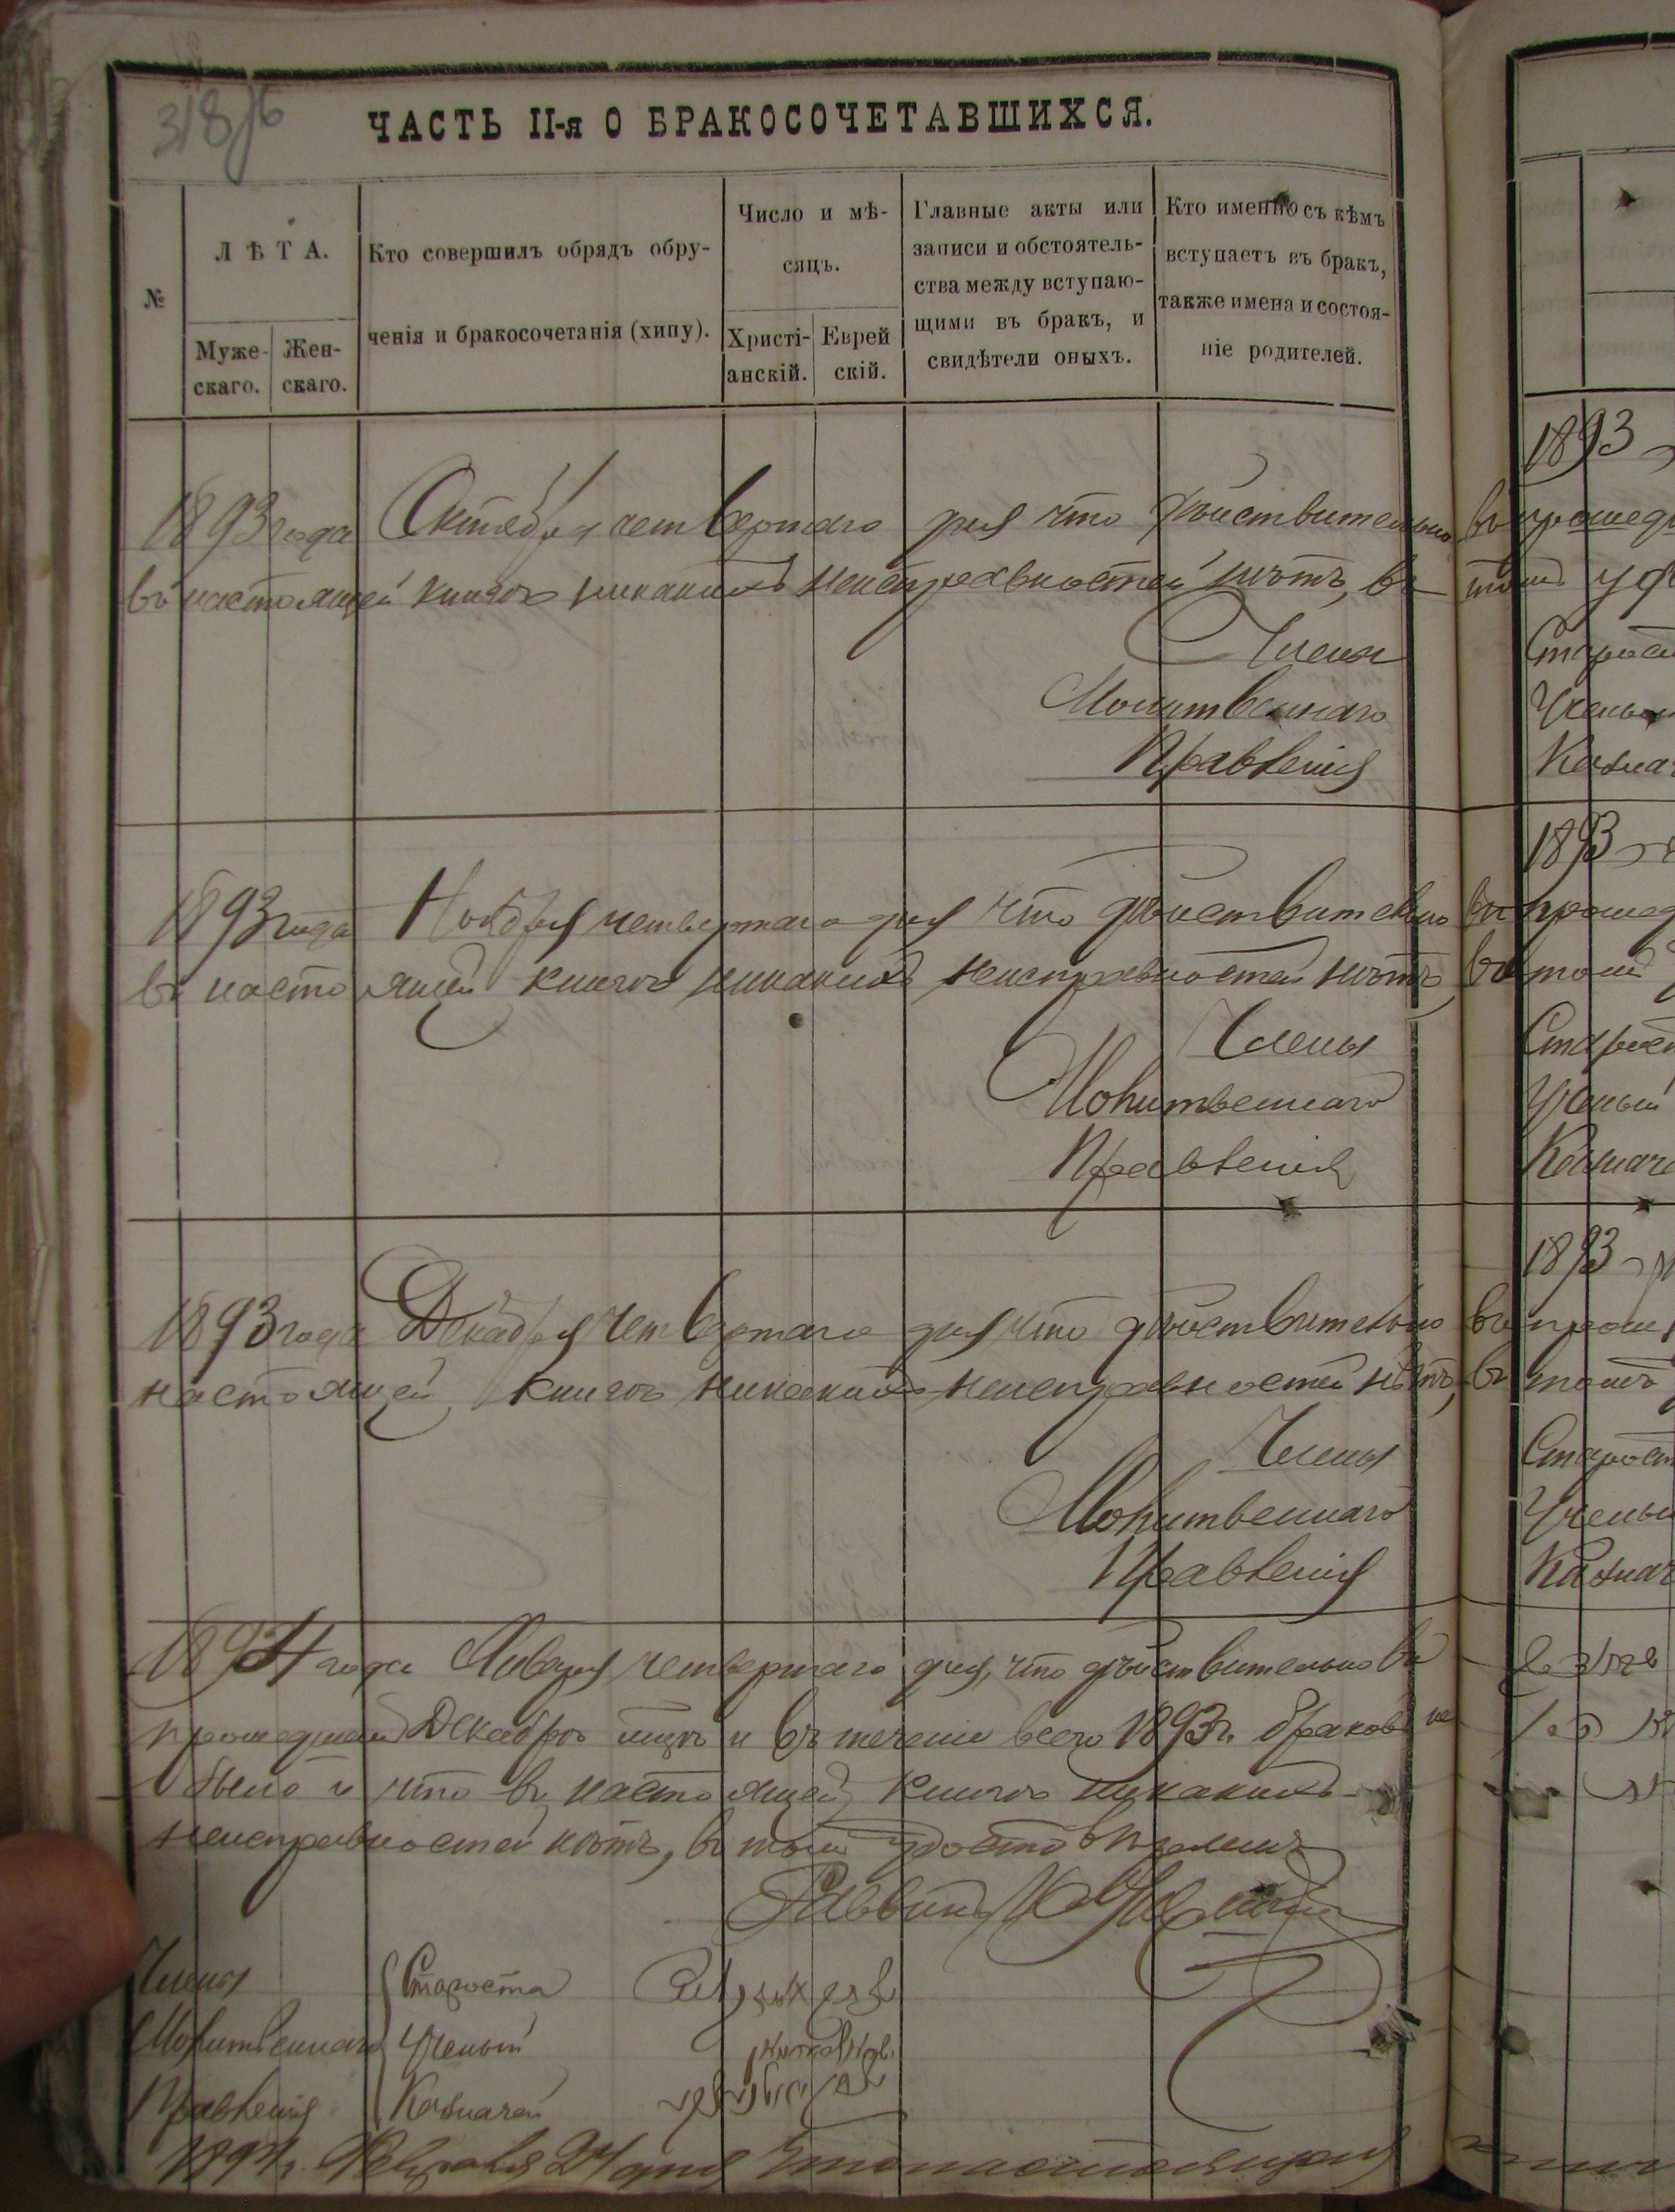 318/6
ЧАСТЬ II-я О БРАКОСОЧЕТАВШИХСЯ.
№
ЛѢТА.
Муже-
скаго.
Жен-
скаго.
Кто совершилъ обрядъ обру-
ченія и бракосочетанія (хипу).
Число и мѣ-
сяцъ.
Христі-
анскій.
Еврей
скій.
Главные акты или
записи и обстоятель-
ства между вступаю-
щими въ бракъ, и
свидѣтели оныхъ.
Кто именно съ кѣмъ
вступаетъ въ бракъ,
также имена и состоя-
ніе родителей.
1893 года Октября четвертаго дня что дѣйствительно въ прошед
въ настоящей книгѣ никакихъ неисправностей нѣтъ, въ томъ
Члены
Молитвеннаго
Правленія
1893 года Ноября четвертаго дня что дѣйствительно въ прошед
въ настоящей книгѣ никакихъ неисправностей нѣтъ, въ томъ
Члены
Молитвеннаго
Правленія
1893 года Декабря четвертаго дня что дѣйствительно въ прош
настоящей книгѣ никакихъ неисправностей нѣтъ, въ томъ
Члены
Молитвеннаго
Правленія
1894 года Января четвертаго дня, что дѣйствительно въ
прошедшемъ Декабрѣ мцѣ и въ теченіи всего 1893 г. браковъ не
было и что въ настоящей книгѣ никакихъ
неисправностей нѣтъ, въ томъ удостовѣряемъ
Раввинъ
Члены Староста
Молитвеннаго Ученый
Правленія Казначей
1894 г. Февраля 24 дня Что настоящая
1893
Старост
Ученый
Казнач
1893
Старост
Ученый
Казначе
1893
Старост
Учены
Казнач